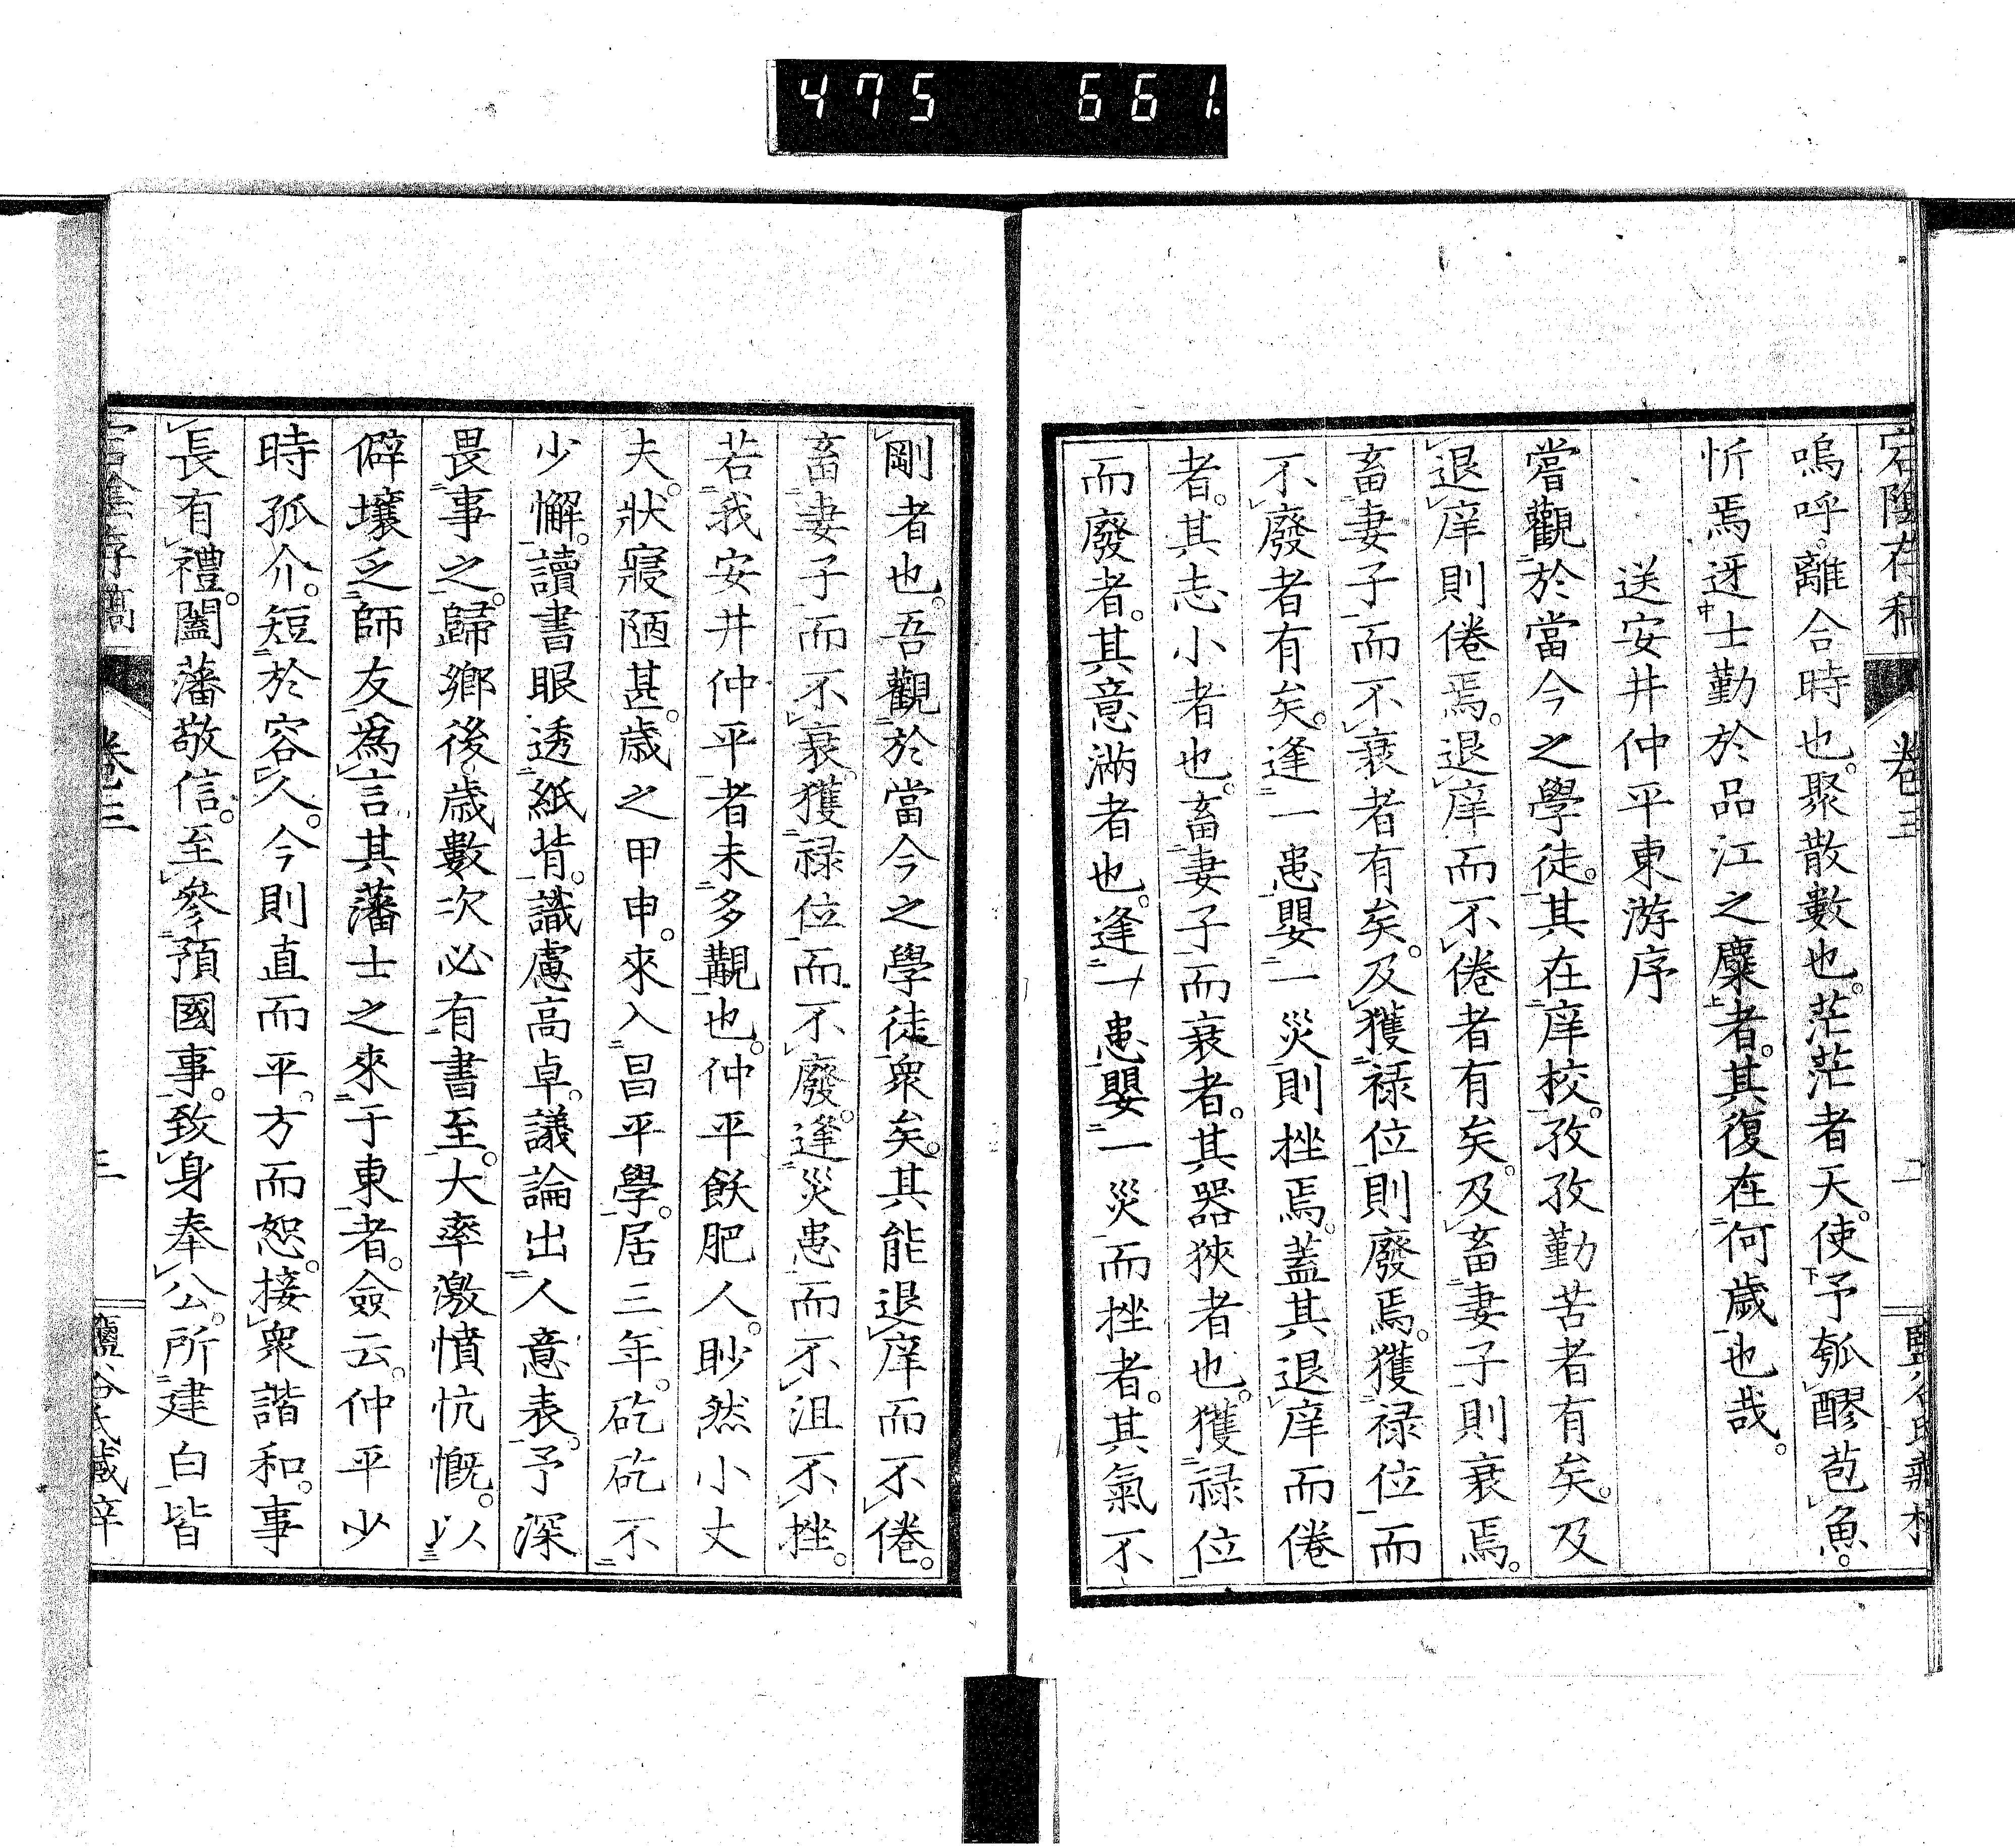 475 661
宕陰存稿 卷三
嗚呼。離合時也。聚散數也。茫茫者天。使予瓠醪苞魚。
忻焉迓士勤於品江之麋者。其復在何歲也哉。
送安井仲平東游序
嘗觀於當今之學徒。其在庠校。孜孜勤苦者有矣。及
退庠則倦焉。退庠而不倦者有矣。及畜妻子則衰焉。
畜妻子而不衰者有矣。及獲祿位則廢焉。獲祿位而
不廢者有矣。逢一患嬰一災則挫焉。蓋其退庠而倦
者。其志小者也。畜妻子而衰者。其器狹者也。獲祿位
而廢者。其意滿者也。逢一患嬰一災而挫者。其氣不
剛者也。吾觀於當今之學徒衆矣。其能退庠而不倦。
畜妻子而不衰。獲祿位而不廢。逢災患而不沮不挫。
若我安井仲平者未多覯也。仲平飫肥人。眇然小丈
夫。狀寢陋甚。歲之甲申。來入昌平學。居三年。矻矻不
少懈。讀書眼透紙背。識慮高卓。議論出人意表。予深
畏事之。歸鄉後。歲數次必有書至。大率激憤忼慨。以
僻壤乏師友為言其藩士之來于東者。僉云。仲平少
時孤介。短於容久。今則直而平。方而恕。接衆諧和。事
長有禮。闔藩敬信。至參預國事。致身奉公。所建白皆
宕陰存稿 卷三 三 鹽谷氏藏梓